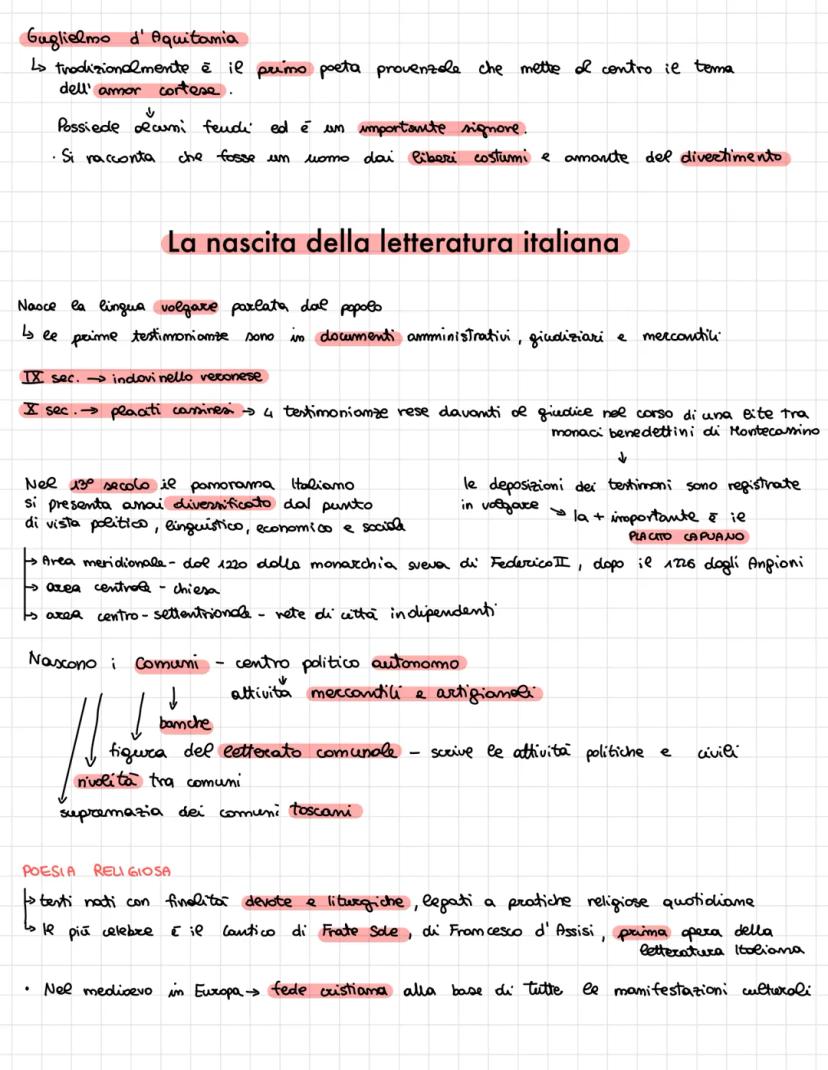 Guglielmo d'Aquitania
↳ tradizionalmente è il primo poeta provenzale che mette al centro il tema
dell'amor cortese.
↓
Possiede alcuni feudi ed è un importante signore.
· Si racconta che fosse un uomo dai liberi costumi e amante del divertimento
La nascita della letteratura italiana
Nasce la lingua volgare parlata dal popolo
↳ le prime testimonianze sono in documenti amministrativi, giudiziari e mercantili
IX sec. → indovinello veronese
X sec. → placiti cassinesi → 4 testimonianze rese davanti al giudice nel corso di una lite tra
monaci benedettini di Montecassino
↓
le deposizioni dei testimoni sono registrate
in volgare → la + importante è il
PLACITO CAPUANO
Nel 13º secolo il panorama Italiano
si presenta assai diversificato dal punto
di vista politico, linguistico, economico e sociale
→ Area meridionale - dal 1220 dalla monarchia sveva di Federico II, dopo il 1226 dagli Angioni
→ area centrale - chiesa
→ area centro-settentrionale - rete di città indipendenti
Nascono i Comuni - centro politico autonomo
↓
attività mercantili e artigianali
banche
figura del letterato comunale - scrive le attività politiche e civili
rivalità tra comuni
supremazia dei comuni toscani
POESIA RELIGIOSA
→ testi nati con finalità devote e liturgiche, legati a pratiche religiose quotidiane
↳ le più celebre è il Cantico di Frate Sole, di Francesco d'Assisi, prima opera della
letteratura Italiana
• Nel medioevo in Europa → fede cristiana alla base di tutte le manifestazioni culturali